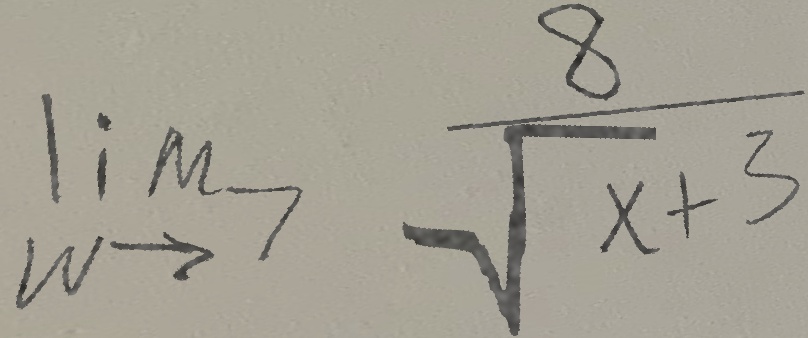 lim w→7 8/√x+3